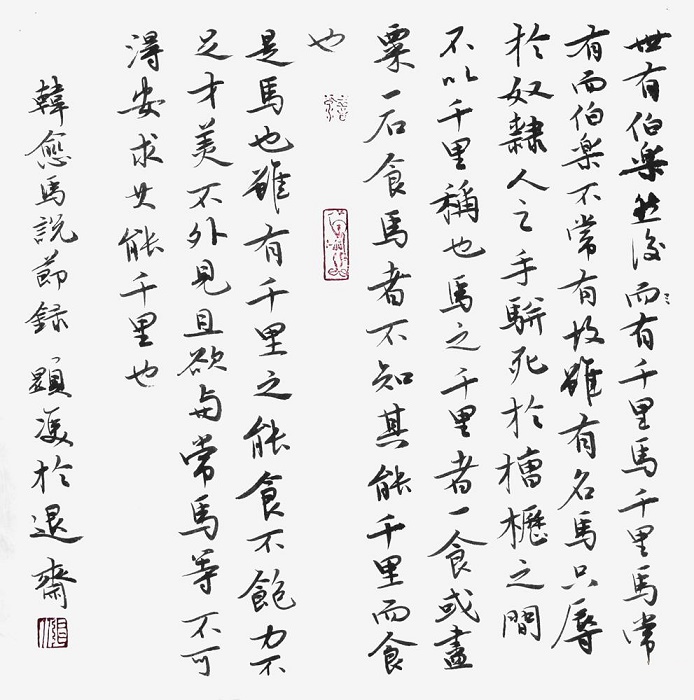 世有伯樂然後而有千里馬千里馬常
有而伯樂不常有故雖有名馬只辱
於奴隸人之手駢死於槽櫪之間
不以千里稱也馬之千里者一食或盡
粟一石食馬者不知其能千里而食
也
是馬也雖有千里之能食不飽力不
足才美不外見且欲與常馬等不可
得安求其能千里也
韓愈馬說節録 顯於退齋